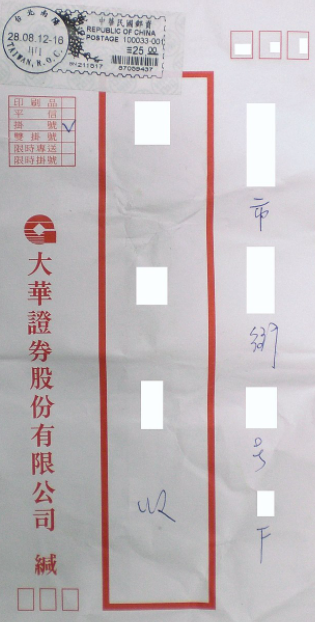 台北南陽
28.08.12-16
TAIWAN, R.O.C.
中華民國郵資
REPUBLIC OF CHINA
POSTAGE 100033-00
25.00
211517 87059437
印刷品
平信
掛號 ✓
雙掛號
限時專送
限時掛號
市
街
号
F
收
大華證券股份有限公司 緘